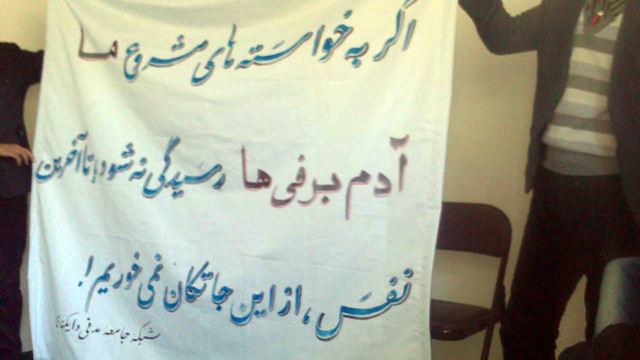 اگر به خواسته های مشروع ما
آدم برفی ها رسیدگی نه شود، تا آخرین
نفس، از این جا تکان نمی خوریم!
شبکه جامعه مدنی و